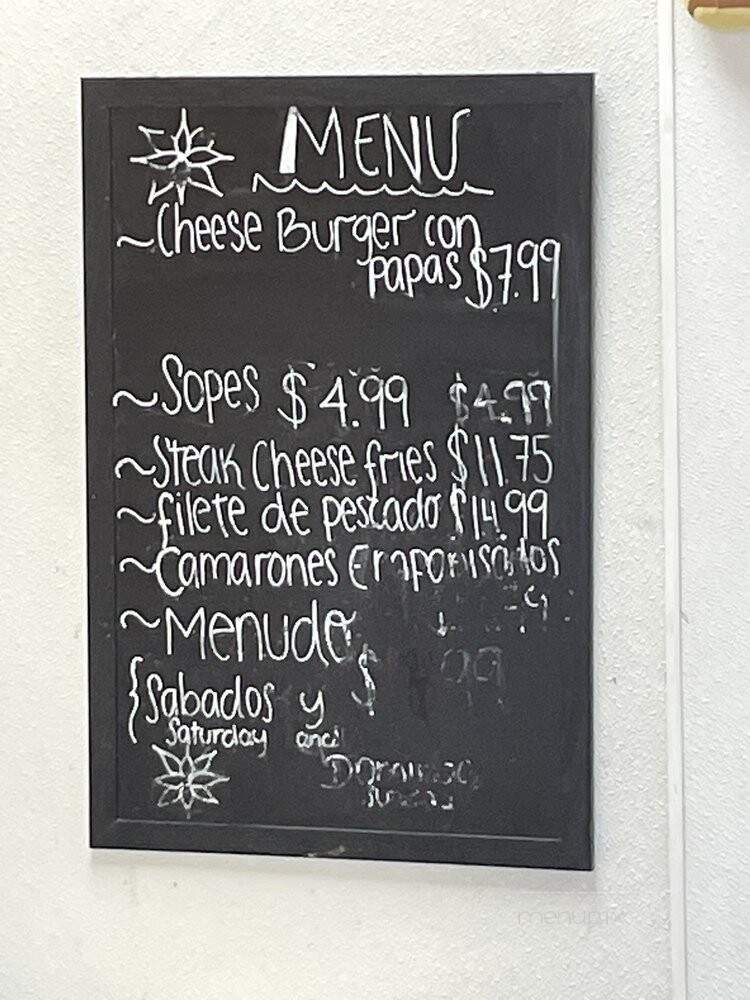 MENU
~Cheese Burger con
papas $7.99
~Sopes $4.99 $4.99
~Steak Cheese fries $11.75
~filete de pescado $14.99
~Camarones
~Menudo
$ 99
{Sabados y
Saturday and
Domingo
Sunday
menupix